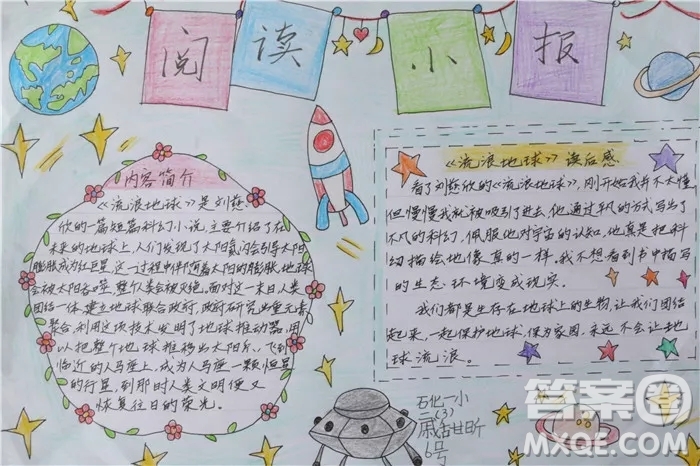 阅读小报
内容简介
《流浪地球》是刘慈
欣的一篇短篇科幻小说,主要介绍了在
未来的地球上,人们发现了太阳氦闪会引导太阳
膨胀成为红巨星,这一过程中伴随着太阳的膨胀,地球
会被太阳吞噬,整个人类会被灭绝。面对这一末日人类
团结一体,建立地球联合政府,政府研究出重元素
聚合,利用这项技术发明了地球推动器,用
以把整个地球推移出太阳系,飞到
临近的人马座上,成为人马座一颗恒星
的行星,到那时人类文明便又
恢复往日的荣光。
《流浪地球》读后感
看了刘慈欣的《流浪地球》,刚开始我并不太懂
但慢慢我就被吸引了进去,他通过平凡的方式写出了
不凡的科幻,佩服他对宇宙的认知,他真是把科
幻描绘地像真的一样。我不想看到书中描写
的生态环境变成现实。
我们都是生存在地球上的生物,让我们团结
起来,一起保护地球,保护家园,永远不会让地
球流浪。
石化一小
三(3)
6号
答案圈
MXQE.COM